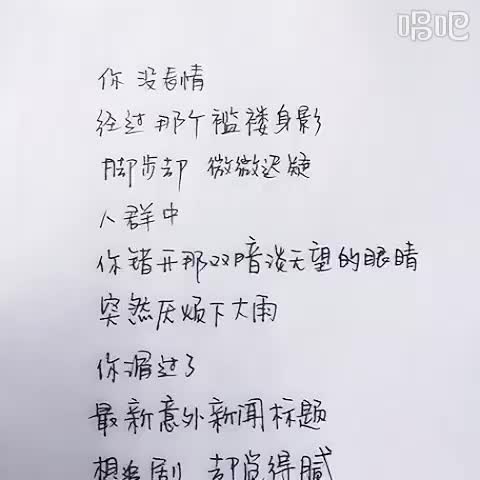 唱吧
你没表情
经过那个褴褛身影
脚步却 微微迟疑
人群中
你错开那双暗淡无望的眼睛
突然厌烦下大雨
你漏过了
最新意外新闻标题
想追剧 却觉得腻